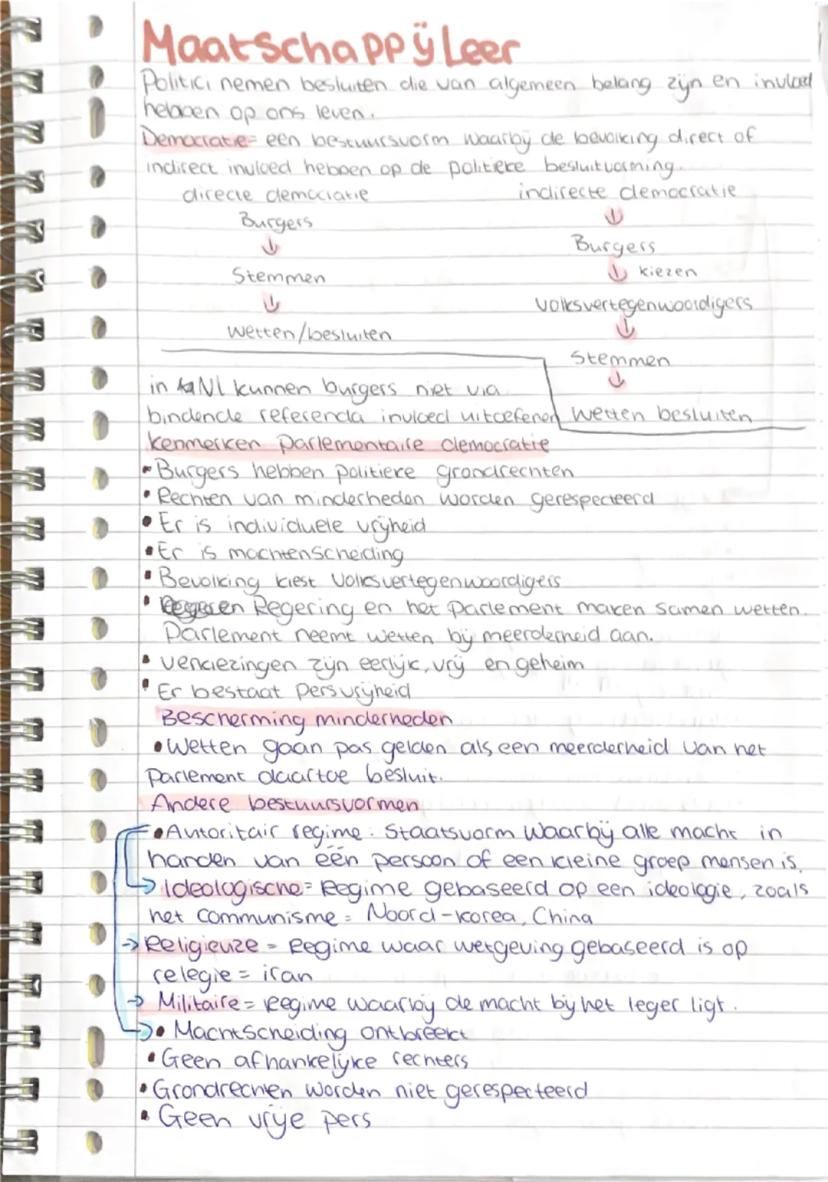 Maatschappÿleer
Politici nemen besluiten die van algemeen belang zÿn en invloed
hebben op ons leven.
Democratie= een bestuursvorm waarbÿ de bevolking direct of
indirect invloed hebben op de politieke besluitvorming.
directe democratie
Burgers
↓
Stemmen
↓
wetten/besluiten
indirecte democratie
↓
Burgers
↓ kiezen
volksvertegenwoordigers
↓
Stemmen
↓
wetten besluiten
in NL kunnen burgers niet via
bindende referenda invloed uitoefenen
kenmerken parlementaire democratie
• Burgers hebben politieke grondrechten
• Rechten van minderheden worden gerespecteerd
• Er is individuele vrÿheid
• Er is machtenscheiding
• Bevolking kiest volksvertegenwoordigers
• Regering en het parlement maken samen wetten.
Parlement neemt wetten bÿ meerderheid aan.
• verkiezingen zÿn eerlÿk, vrÿ en geheim
• Er bestaat persvrÿheid
Bescherming minderheden
• Wetten gaan pas gelden als een meerderheid van het
parlement daartoe besluit.
Andere bestuursvormen
• Autoritair regime: Staatsvorm waarbÿ alle macht in
handen van één persoon of een kleine groep mensen is.
→ Ideologische= Regime gebaseerd op een ideologie, zoals
het communisme = Noord-Korea, China
→ Religieuze = Regime waar wetgeving gebaseerd is op
relegie = iran
→ Militaire = Regime waarbÿ de macht bÿ het leger ligt.
→ • Machtscheiding ontbreekt
• Geen afhankelÿke rechters
• Grondrechten worden niet gerespecteerd
• Geen vrÿe pers